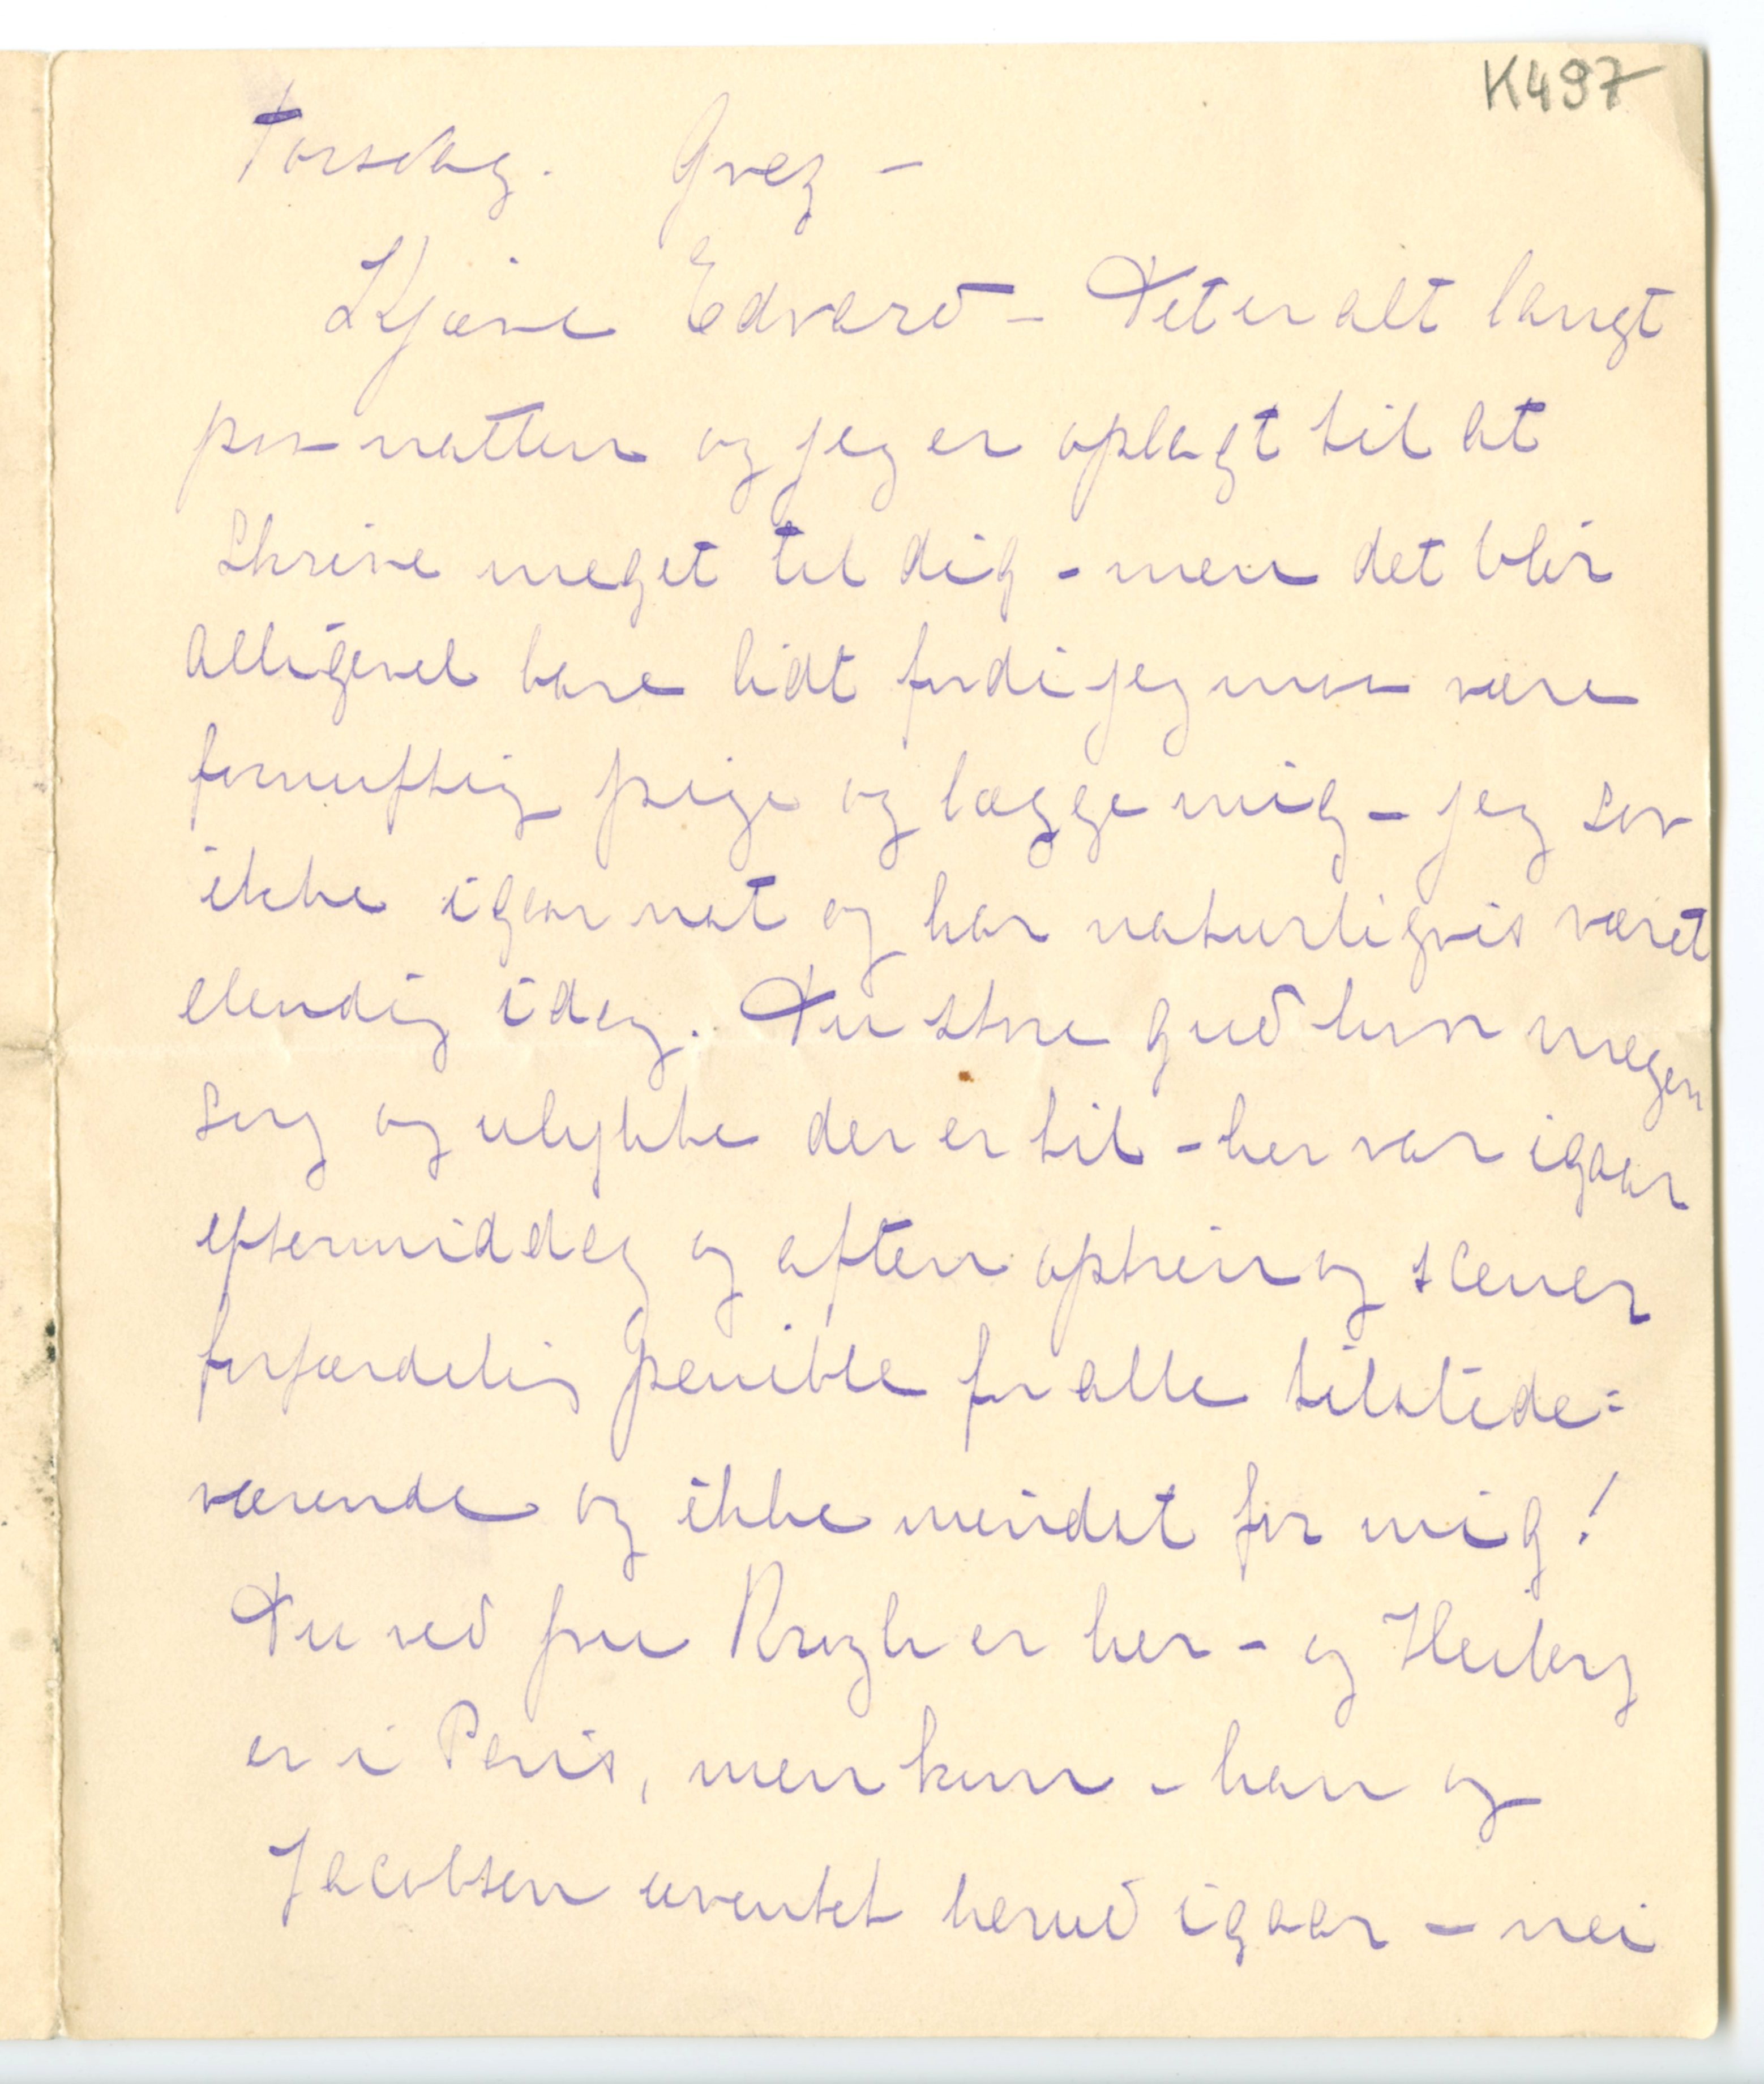 K497
Torsdag. Grez –
Kjære Edvard – Det er alt langt
paa natten og jeg er oplagt til at
skrive meget til dig – men det blir
alligevel bare lidt fordi jeg maa være
fornuftig pige og lægge mig – jeg sov
ikke igaar nat og har naturligvis været
elendig idag. Du store gud hvor megen
sorg og ulykke der er til – her var igaar
eftermiddag og aften optrin og scener
forfærdelig penible for alle tilstede=
værende og ikke mindst for mig!
Du ved fru Krogh er her – og Heiberg
er i Paris, men kom – han og
Jacobsen uventet herud igaar – nei